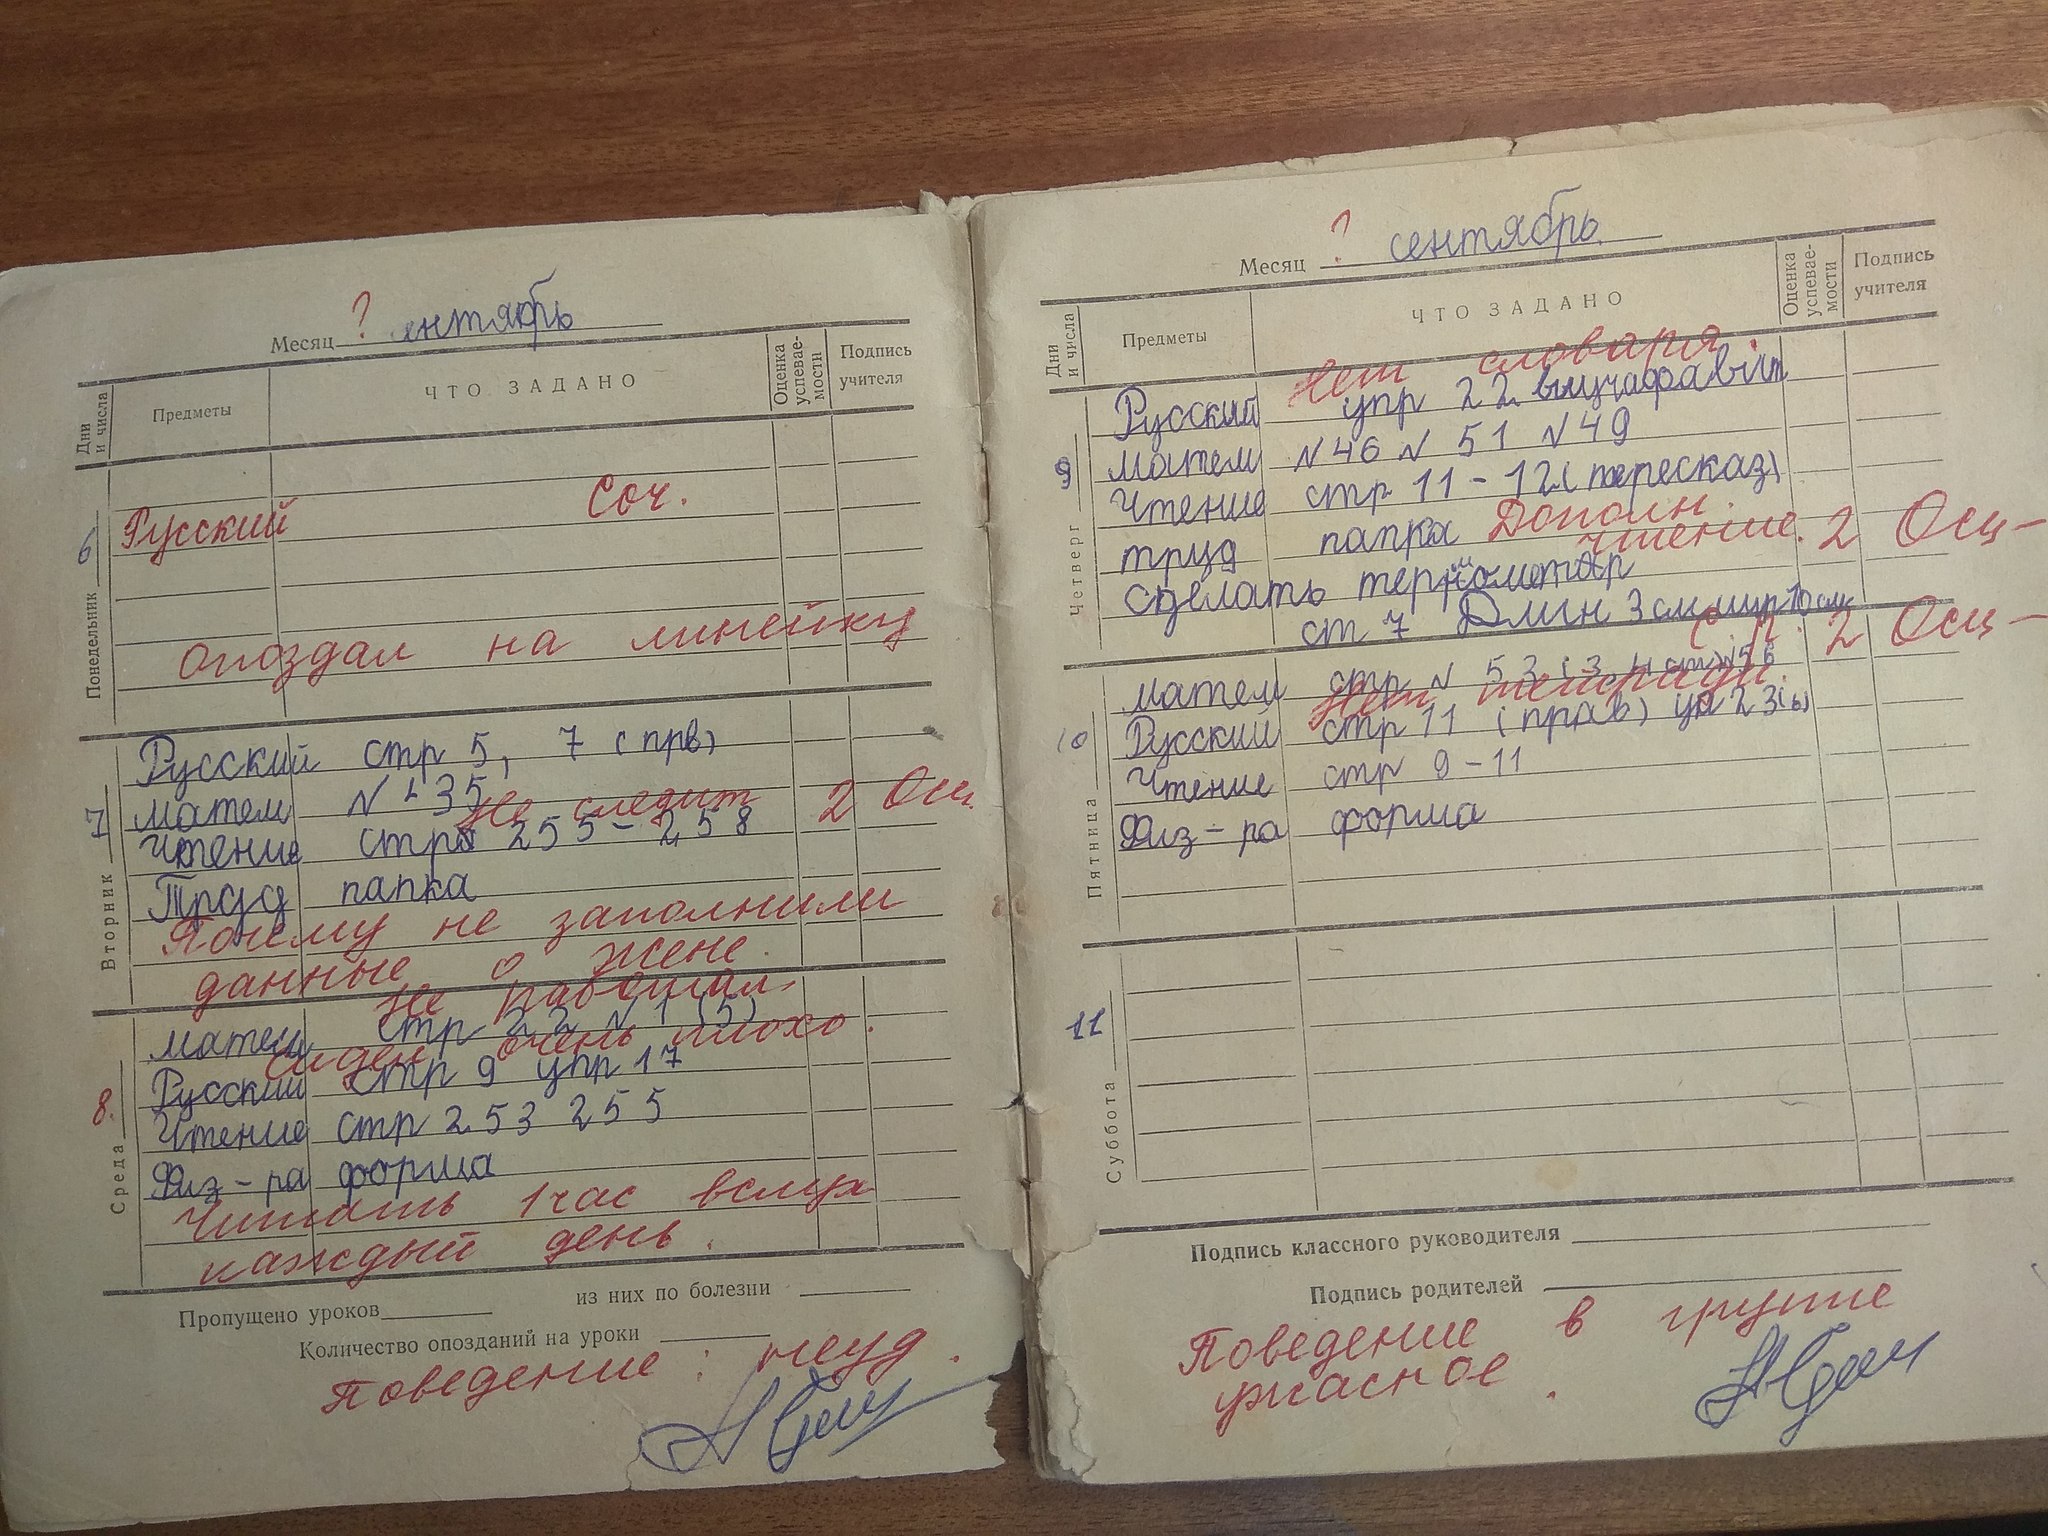 Месяц ? ентябрь
Дни и числа
Предметы
ЧТО ЗАДАНО
Оценка успевае-мости
Подпись учителя
Понедельник 6
Русский Соч.
опоздал на линейку
Вторник 7
Русский стр 5, 7 (прв)
матем № 35
Не следит 2 Осц
Чтение стр 255-258
Труд папка
Почему не заполнили
данные о жене
Среда 8.
Не работал.
матем стр 22 № 1 (5)
очень плохо.
Русский стр 9 упр 17
Чтение стр 253 255
Физ-ра форма
Читать 1 час вслух
каждый день.
Пропущено уроков
из них по болезни
Количество опозданий на уроки
Поведение: неуд.
Месяц ? сентябрь
Дни и числа
Предметы
ЧТО ЗАДАНО
Оценка успевае-мости
Подпись учителя
Четверг 9
Нет словаря.
Русский упр 22 выучафавит
матем №46 № 51 №49
Чтение стр 11-12 (пересказ)
труд папка Дополн.
чтение. 2 Осц-
сделать термометар
ст 7 Длин 3 см шир 10 см
Пятница 10
2 Осц-
матем стр № 53
Нет тетради.
Русский стр 11 (прав) уп 23(ь)
Чтение стр 9-11
Физ-ра форма
Суббота 11
Подпись классного руководителя
Подпись родителей
Поведение в группе
ужасное.